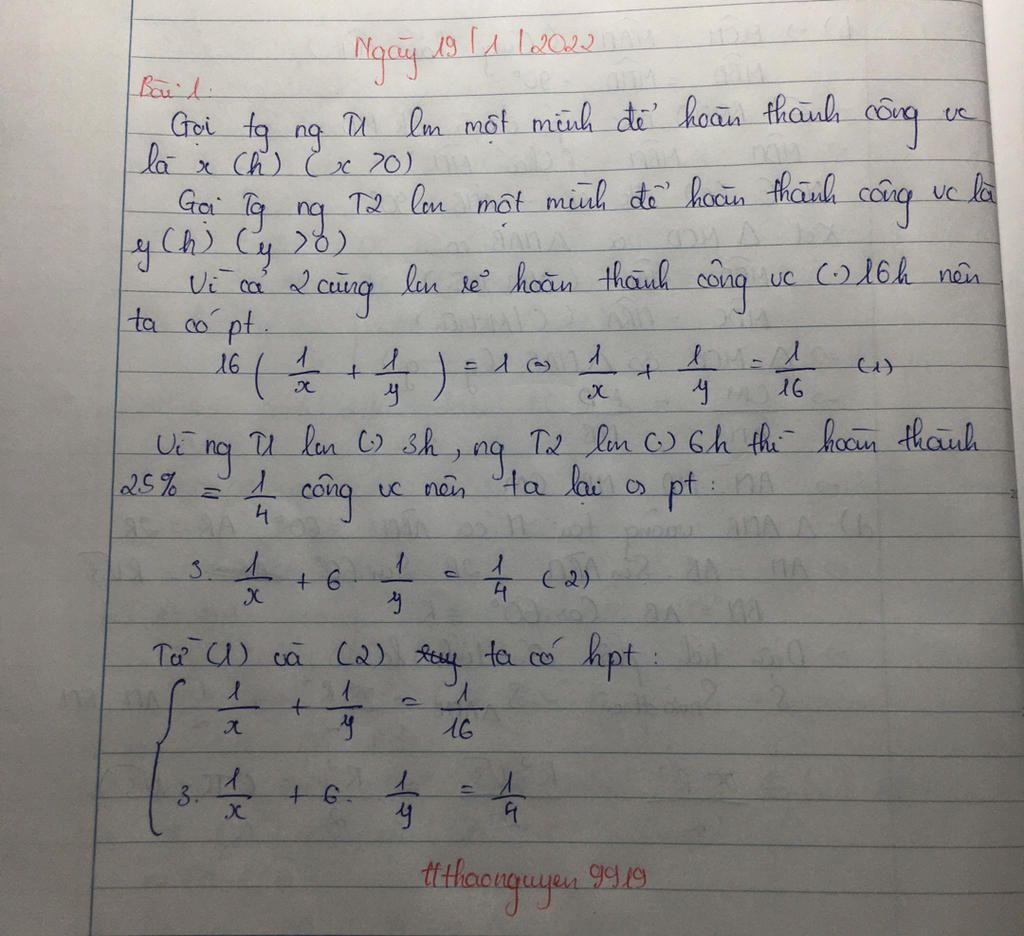 Ngày 19/1/2022
Bài 1:
Gọi tg ng T1 lm một mình để hoàn thành công vc
là x (h) (x >0)
Gọi Tg ng T2 lm một mình để hoàn thành công vc là
y (h) (y >0)
Vì cả 2 cùng lm sẽ hoàn thành công vc (.) 16h nên
ta có pt.
16 ( 1/x + 1/y ) = 1 ⇔ 1/x + 1/y = 1/16 (1)
Vì ng T1 lm (.) 3h, ng T2 lm (.) 6h thì hoàn thành
25% = 1/4 công vc nên ta lại có pt:
3. 1/x + 6. 1/y = 1/4 (2)
Từ (1) và (2) ta có hpt:
{ 1/x + 1/y = 1/16
3. 1/x + 6. 1/y = 1/4
ttthaonguyen 9919